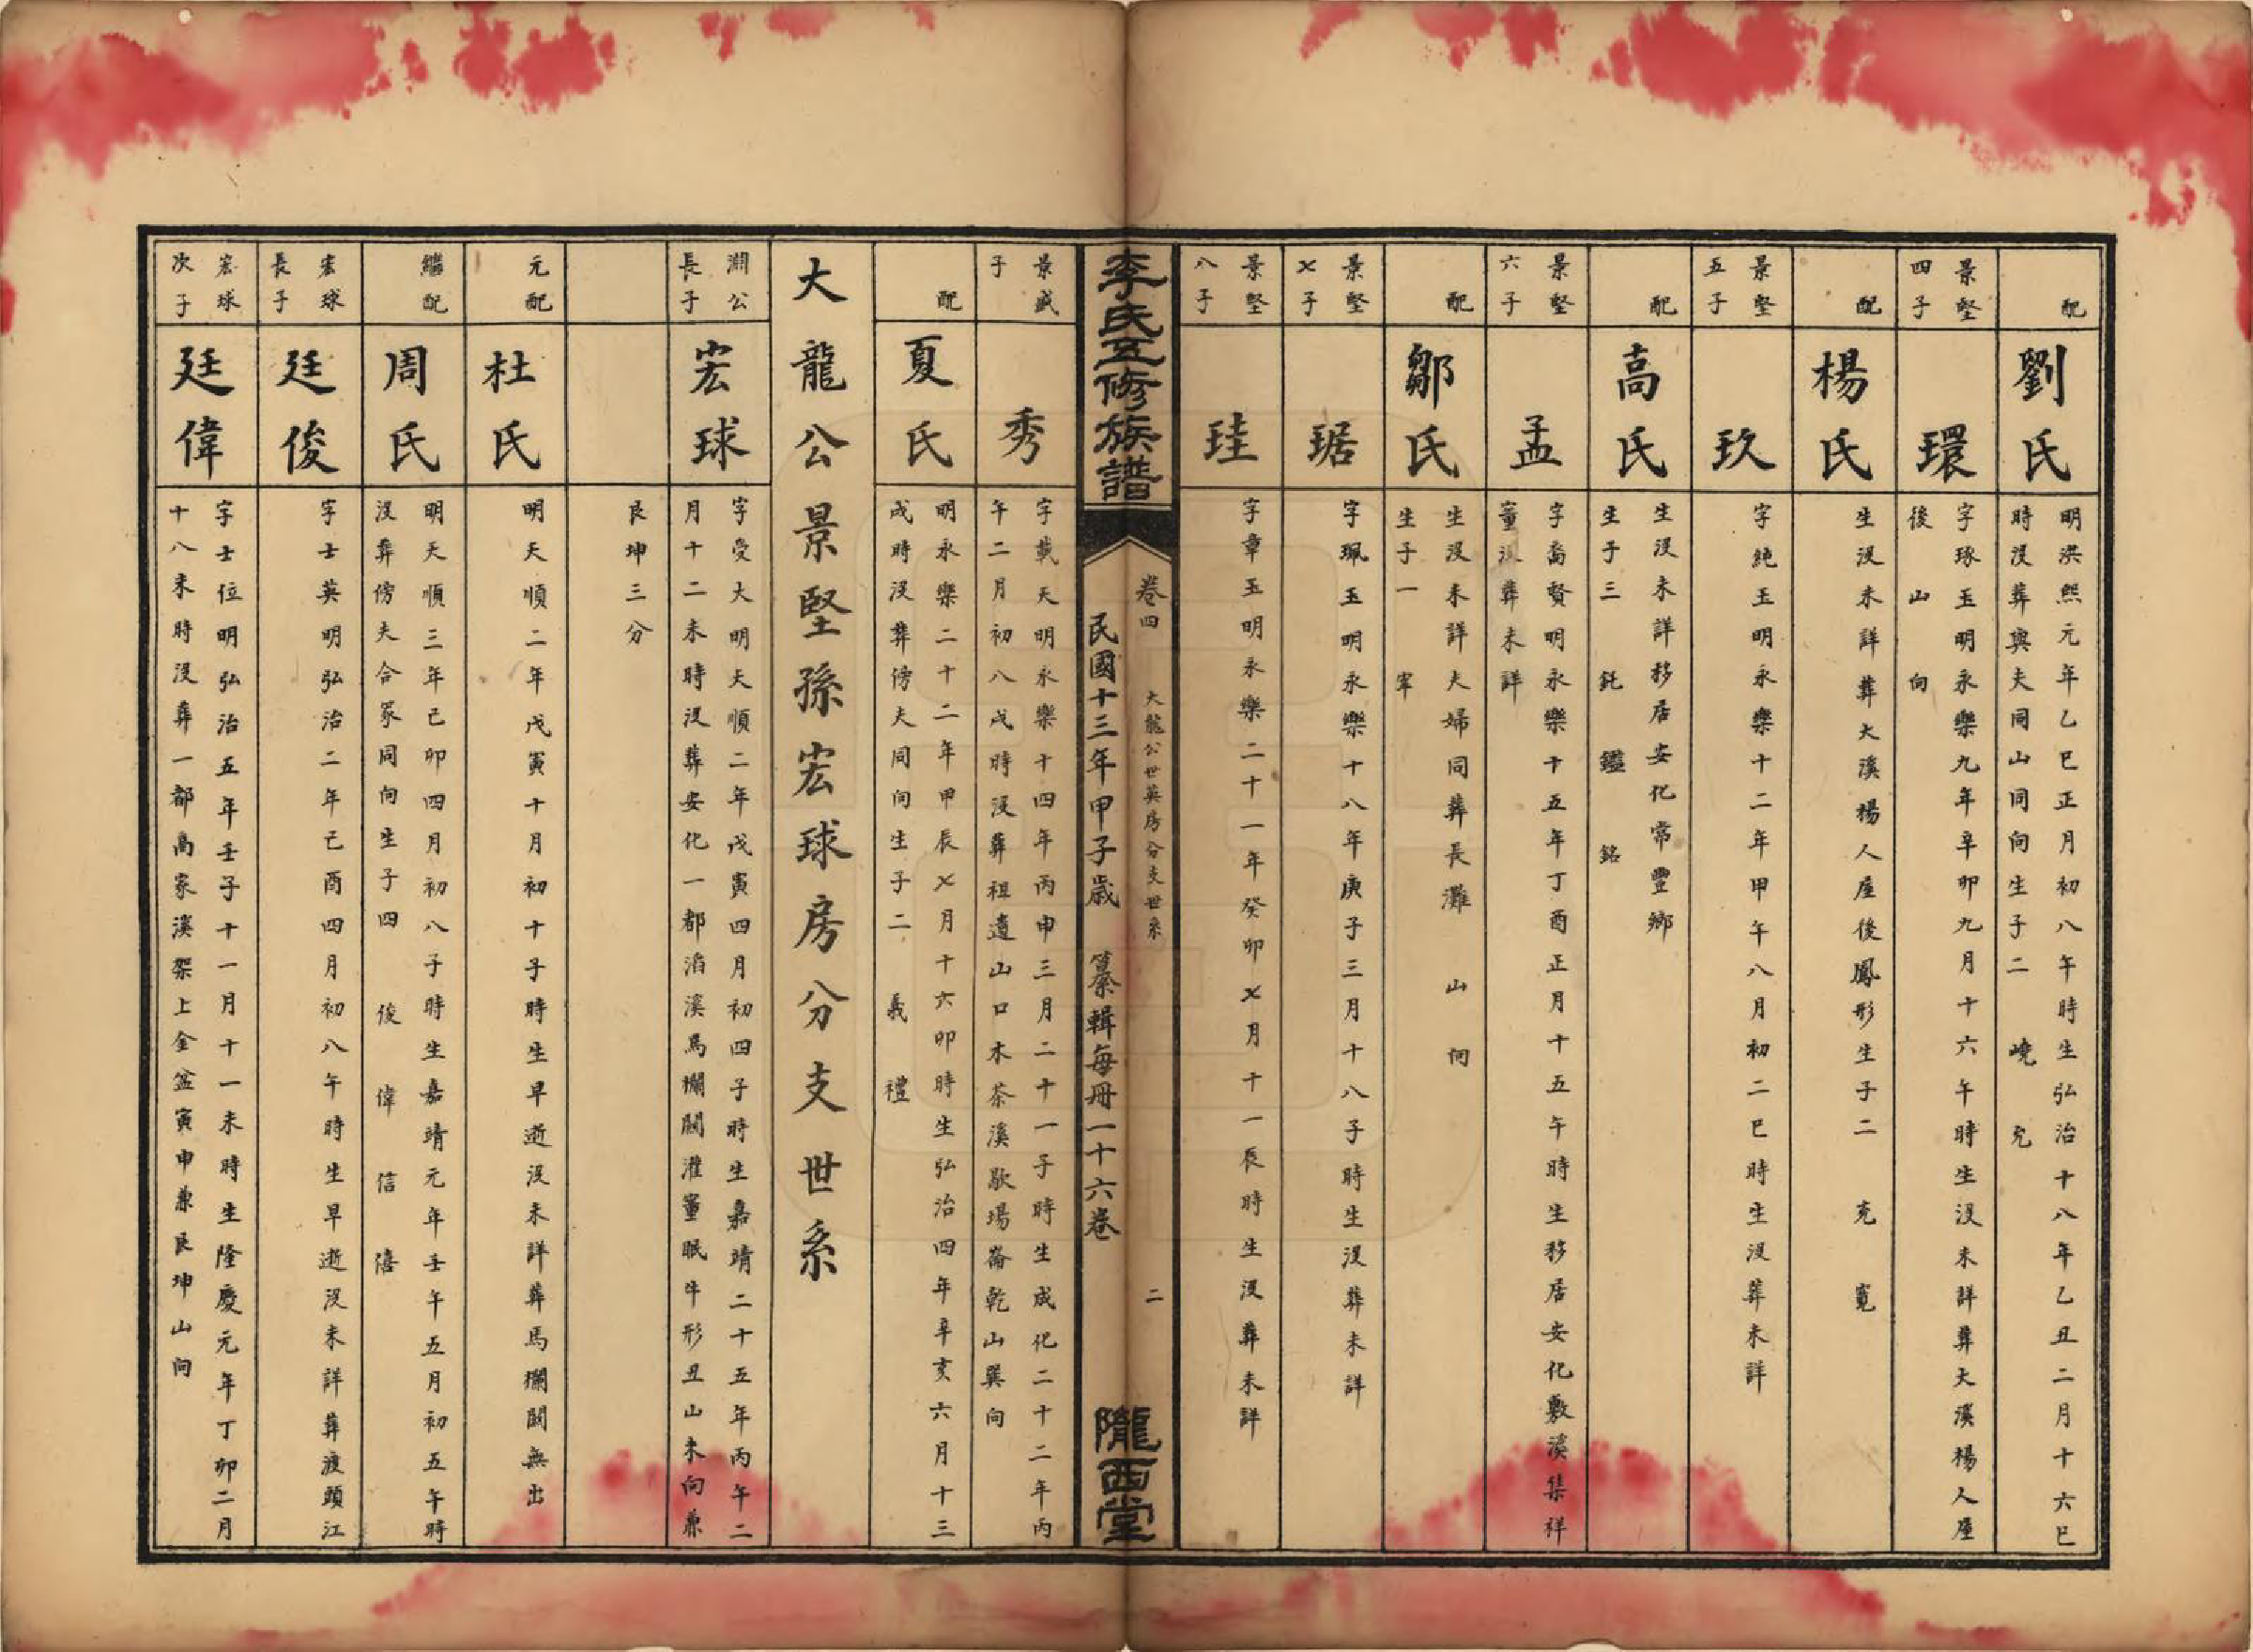 配
劉氏
明洪熙元年乙巳正月初八午時生弘治十八年乙丑二月十六巳
時沒葬與夫同山同向生子二 嶢 堯
景堅
四子
環
字琢玉明永樂九年辛卯九月十六午時生沒未詳葬大溪楊人屋
後 山 向
配
楊氏
生沒未詳葬大溪楊人屋後鳳形生子二 克 寬
景堅
五子
玖
字純玉明永樂十二年甲午八月初二巳時生沒葬未詳
配
高氏
生沒未詳移居安化常豐鄉
生子三 鈋 鑑 銘
景堅
六子
孟
字喬賢明永樂十五年丁酉正月十五午時生移居安化敷溪集祥
董沒葬未詳
配
鄒氏
生沒未詳夫婦同葬長灘 山 向
生子一 寧
景堅
乄子
琚
字珮玉明永樂十八年庚子三月十八子時生沒葬未詳
景堅
八子
珪
字章玉明永樂二十一年癸卯乄月十一辰時生沒葬未詳
李氏五修族譜
卷四 大龍公世英房分支世系 二
民國十三年甲子歲 纂輯每冊一十六卷
隴西堂
景盛
子
秀
字載天明永樂十四年丙申三月二十一子時生成化二十二年丙
午二月初八戌時沒葬祖遺山口木茶溪歇場崙乾山巽向
配
夏氏
明永樂二十二年甲辰乄月十六卯時生弘治四年辛亥六月十三
戌時沒葬傍夫同向生子二 義 禮
大龍公景堅孫宏球房分支世系
澗公
長子
宏球
字受大明天順二年戊寅四月初四子時生嘉靖二十五年丙午二
月十二未時沒葬安化一都滔溪馬欄闗灌董眠牛形丑山未向兼
艮坤三分
元配
杜氏
明天順二年戊寅十月初十子時生早逝沒未詳葬馬欄闗無出
繼配
周氏
明天順三年己卯四月初八子時生嘉靖元年壬午五月初五午時
沒葬傍夫合冢同向生子四 俊 偉 信 僖
宏球
長子
廷俊
字士英明弘治二年己酉四月初八午時生早逝沒未詳葬渡頭江
宏球
次子
廷偉
字士位明弘治五年壬子十一月十一未時生隆慶元年丁卯二月
十八未時沒葬一都高家溪架上金盆寅申兼艮坤山向